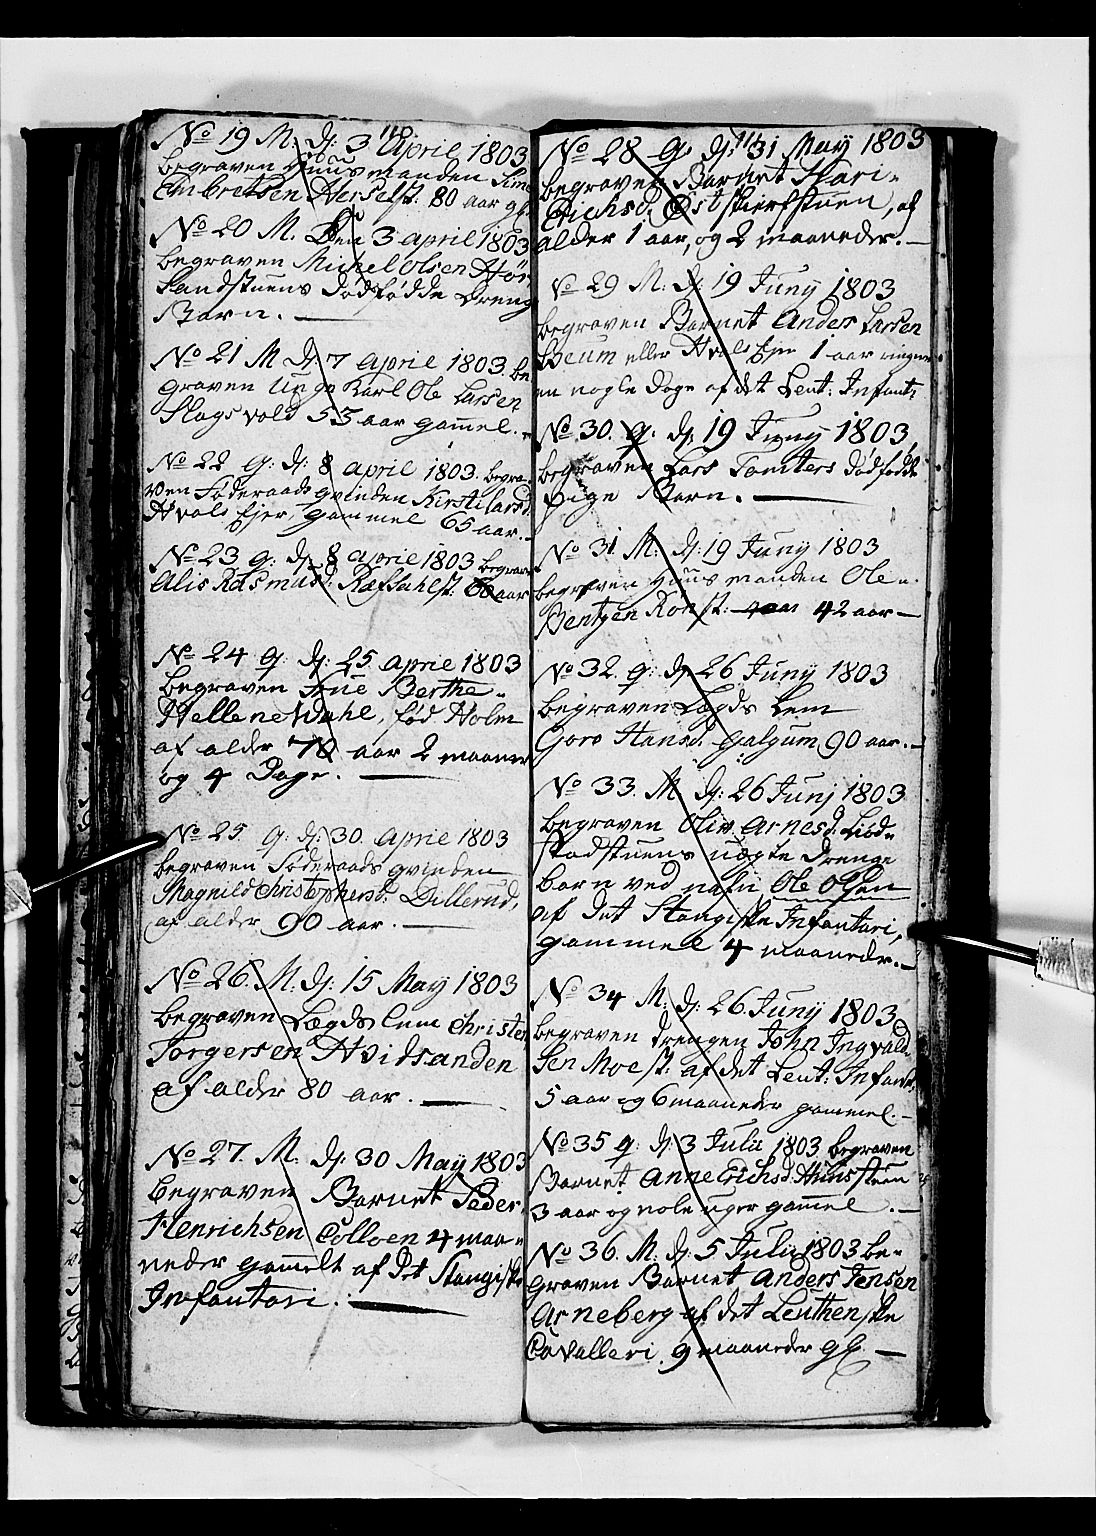 110
No 19 M. dj: 3 April 1803
begraven Huusmanden Sime
Embretsen Herselst: 80 aar gl.
No 20 M. Den 3 april 1803
begraven Michel Olsen Hør
Sandstuens dødfødde Dreng
Barn. —
No 21 M dj 7 april 1803 be
graven Unge Karl Ole Larsen
Slagsvold 53 aar gammel. —
No 22 q: dj: 8 april 1803. begra-
ven Føderaads qvinden Kirsti Larsd:
Hvals Ejer, gammel 65 aar. —
No 23 q: dj 8 april 1803 begrav
Alis Rasmusd: Ræfsahlst: 60 aar
No 24 q: dj: 25 april 1803
begraven Frue Berthe
Hellene Dahl, fød Holm
af alder 70 aar 2 maaner
og 4 Dage. —
No 25. q: dj: 30. april 1803
begraven Føderaads qvinden
Magnild Christophersd: Dillerud,
af alder 90 aar. —
No 26. M. dj: 15 May 1803
begraven Lægds Lem Christen
Torgersen Hvidsanden
af alder 80 aar. —
No 27. M. dj: 30 May 1803
begraven Barnet Peder
Henrichsen Colloen 4 maa-
neder gammelt af det Stangiske
Infantori. —
111
No 28 q: dj: 31 May 1803
begraven Barnet Kari
Erichsd: Østskierfstuen, af
alder 1 aar, og 2 maaneder. —
No 29 M: dj: 19 Juny 1803
begraven Barnet Anders Larsen
eller Hvals Ejer 1 aar
en nogle Dage af det Leut: Infant:
No 30. q: dj 19 Juny 1803,
begraven Lars Tomters dødfødde
Pige Barn. —
No 31 M: dj: 19 Juny 1803
begraven Huusmanden Ole
Bentzen Ronst: 42 aar —
No 32. q: dj 26 Juny 1803
begraven Lægds Lem
Goro Hansd: Galgum 90 aar. —
No 33. M dj: 26 Junj 1803
begraven Oliv Arnesd: Liød-
stadstuens uægte Drenge
barn ved nafn Ole Olsen
af det Stangiske Infantari,
gammel 4 maaneder. —
No 34 M: dj: 26 Juny 1803
begraven drengen John Ingvald-
sen Moest: af det Leut: Infant:
5 aar og 6 maaneder gammel. —
No 35 q: dj 3 Julii 1803 begraven
Barnet Anne Erichsd: Huusstuen
3 aar og nole uger gammel. —
No 36. M: dj: 5 Julii 1803 be-
graven Barnet Anders Jensen
Arneberg af det Leuthenske
Cavalleri. 9 maaneder gl. —